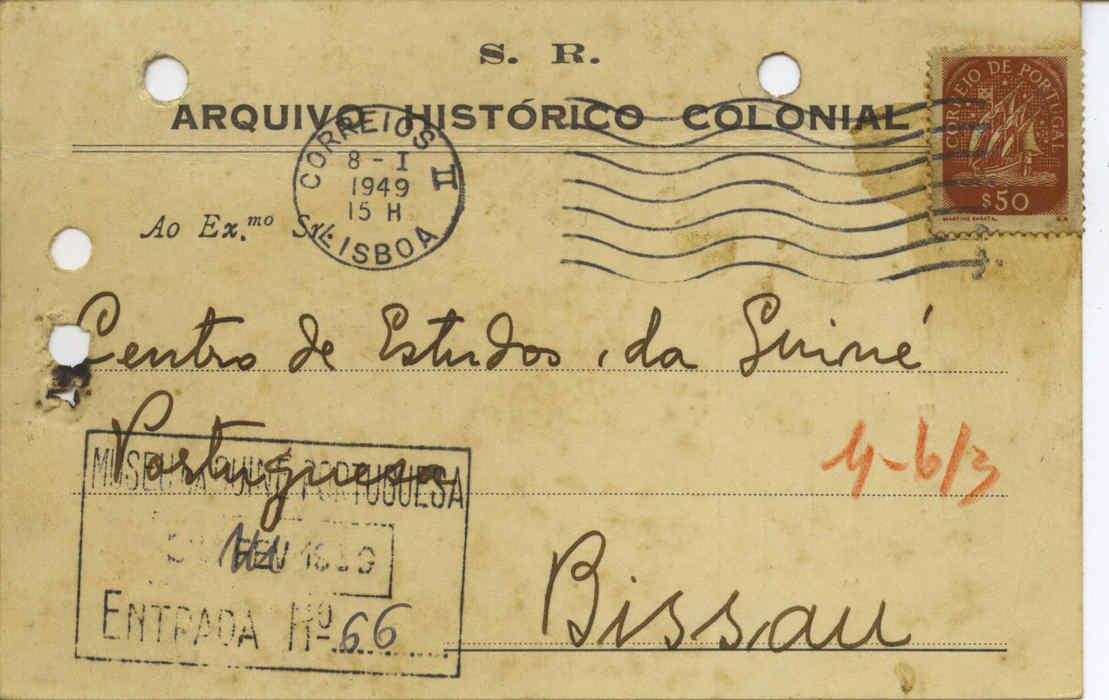 S. R.
ARQUIVO HISTÓRICO COLONIAL
CORREIO DE PORTUGAL
$50
MARTINS BARATA
CORREIOS II
8 - I
1949
15 H
LISBOA
Ao Ex.mo Sr.
Centro de Estudos da Guiné
Portuguesa
4-6/3
Bissau
MUSEU DA GUINÉ PORTUGUESA
FEV
ENTRADA Nº 66